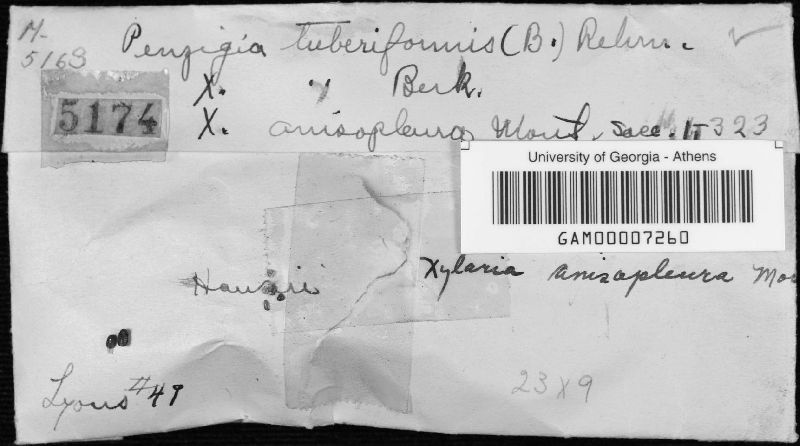 M-
5163
Penzigia tuberiformis (B.) Rehm.
5174
X. " Berk.
X. anisopleura Mont. Sacc. 1, 323
University of Georgia - Athens
GAM00007260
Xylaria anisopleura Mo
Hawaii
Lyons #47
23 x 9